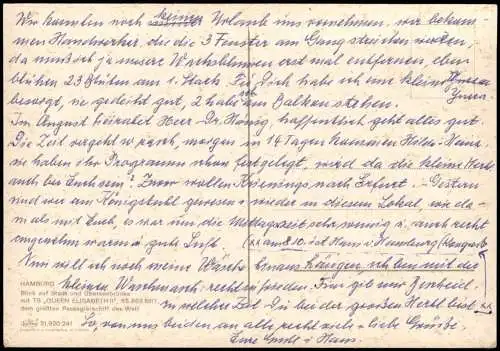 Wir konnten noch keinen Urlaub uns vornehmen, wir bekam-
men Handwerker, die die 3 Fenster am Gang streichen wollen,
da muß ich ja unsere Wachsblumen erst mal entfernen, eben
blühen 23 Blüten am 1. Stock. Für Dich habe ich um kleine
besorgt, sie gedeiht gut, 2 habe am Balkon stehen.
Im August heiratet Herr Dr. Hönig, hoffentlich geht alles gut.
Die Zeit vergeht so rasch, morgen in 14 Tagen kommen Hilde + Hans,
sie haben ihr Programm schon festgelegt, wird da die kleine Herbst
auch bei Euch sein? Zwar wollen nach Erfurt. – Gestern
und wir am Königstuhl gewesen + wieder in diesem Lokal, wie da-
mals mit Euch, es war um die Mittagszeit sehr wenig u. auch recht
angenehm warm + gute Luft.
xx am 8.10. ist Hans in Hamburg
Nun will ich noch meine Wäsche hängen, ich bin mit der
kleinen Waschmasch. recht zufrieden. Nun gib uns Bescheid,
in welcher Zeit Du bei der großen Herbst bist xx
So, von uns beiden an alle recht viele liebe Grüße.
Eure + Hans.
HAMBURG
Blick auf Stadt und Überseebrücke
mit TS „QUEEN ELISABETH II“, 65.863 BRT,
dem größten Passagierschiff der Welt
21.920 241